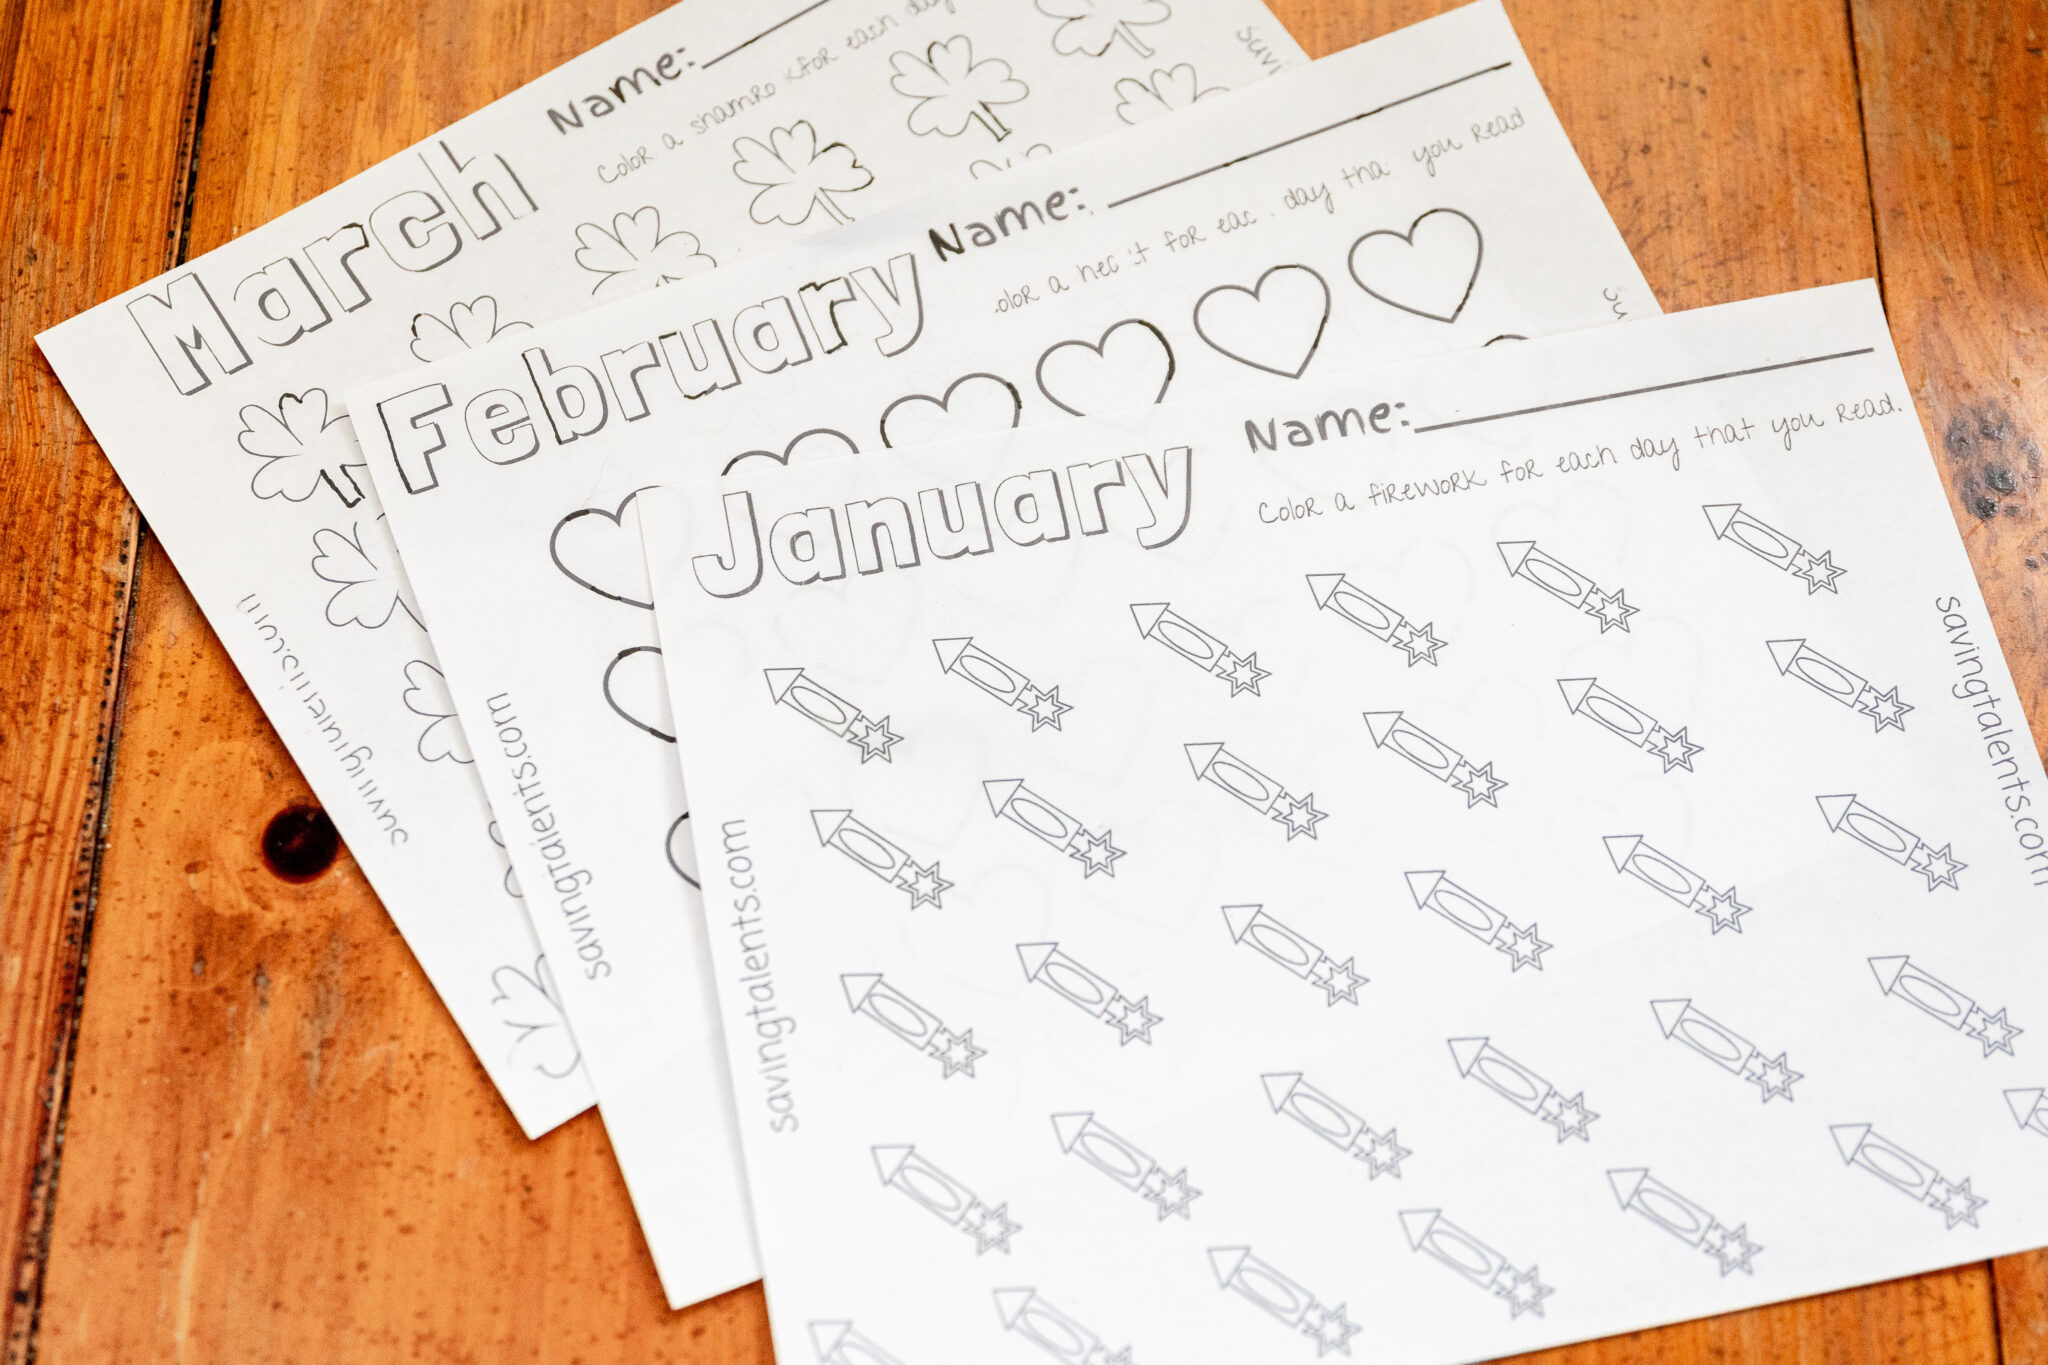 March
Name:
Color a shamro k for each day
savingtalents.com
February
Name:
olor a hea t for eac day tha you read
savingtalents.com
January
Name:
Color a firework for each day that you read.
savingtalents.com
savingtalents.com